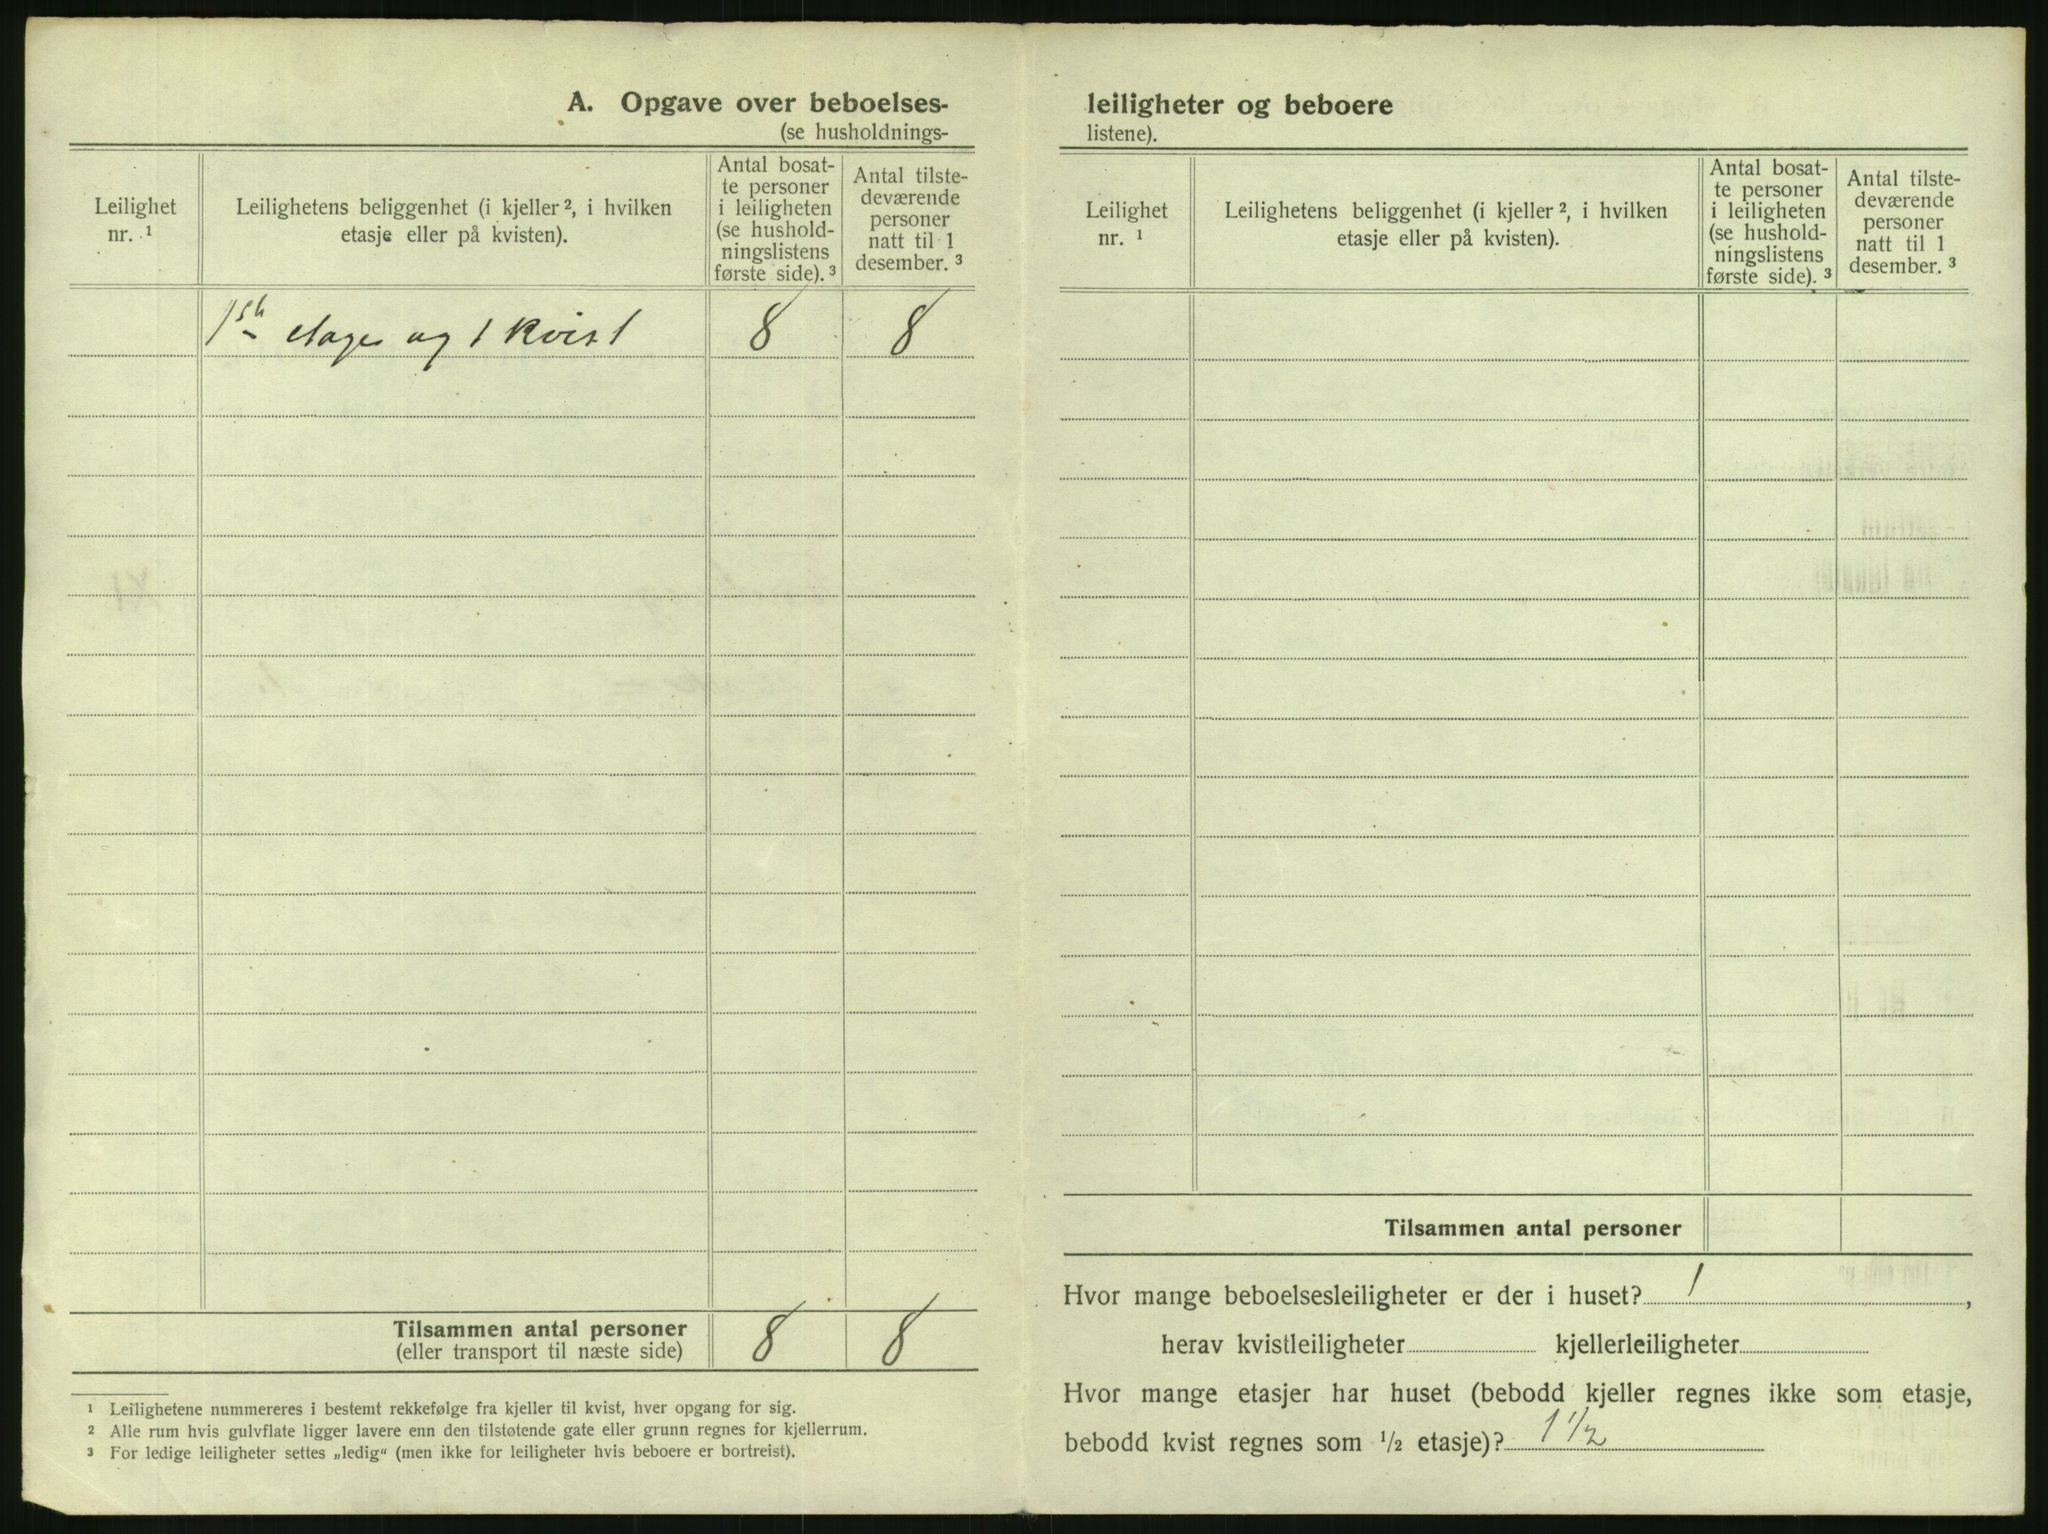 A. Opgave over beboelses-
(se husholdnings-
Leilighet
nr. ¹
Leilighetens beliggenhet (i kjeller ², i hvilken
etasje eller på kvisten).
Antal bosat-
te personer
i leiligheten
(se hushold-
ningslistens
første side). ³
Antal tilste-
deværende
personer
natt til 1
desember. ³
1ste etage og 1 kvist 8 8
Tilsammen antal personer
(eller transport til næste side)
8 8
¹ Leilighetene nummereres i bestemt rekkefølge fra kjeller til kvist, hver opgang for sig.
² Alle rum hvis gulvflate ligger lavere enn den tilstøtende gate eller grunn regnes for kjellerrum.
³ For ledige leiligheter settes „ledig“ (men ikke for leiligheter hvis beboere er bortreist).
leiligheter og beboere
listene).
Leilighet
nr. ¹
Leilighetens beliggenhet (i kjeller ², i hvilken
etasje eller på kvisten).
Antal bosat-
te personer
i leiligheten
(se hushold-
ningslistens
første side). ³
Antal tilste-
deværende
personer
natt til 1
desember. ³
Tilsammen antal personer
Hvor mange beboelsesleiligheter er der i huset? 1,
herav kvistleiligheter kjellerleiligheter
Hvor mange etasjer har huset (bebodd kjeller regnes ikke som etasje,
bebodd kvist regnes som ½ etasje)? 1 ½